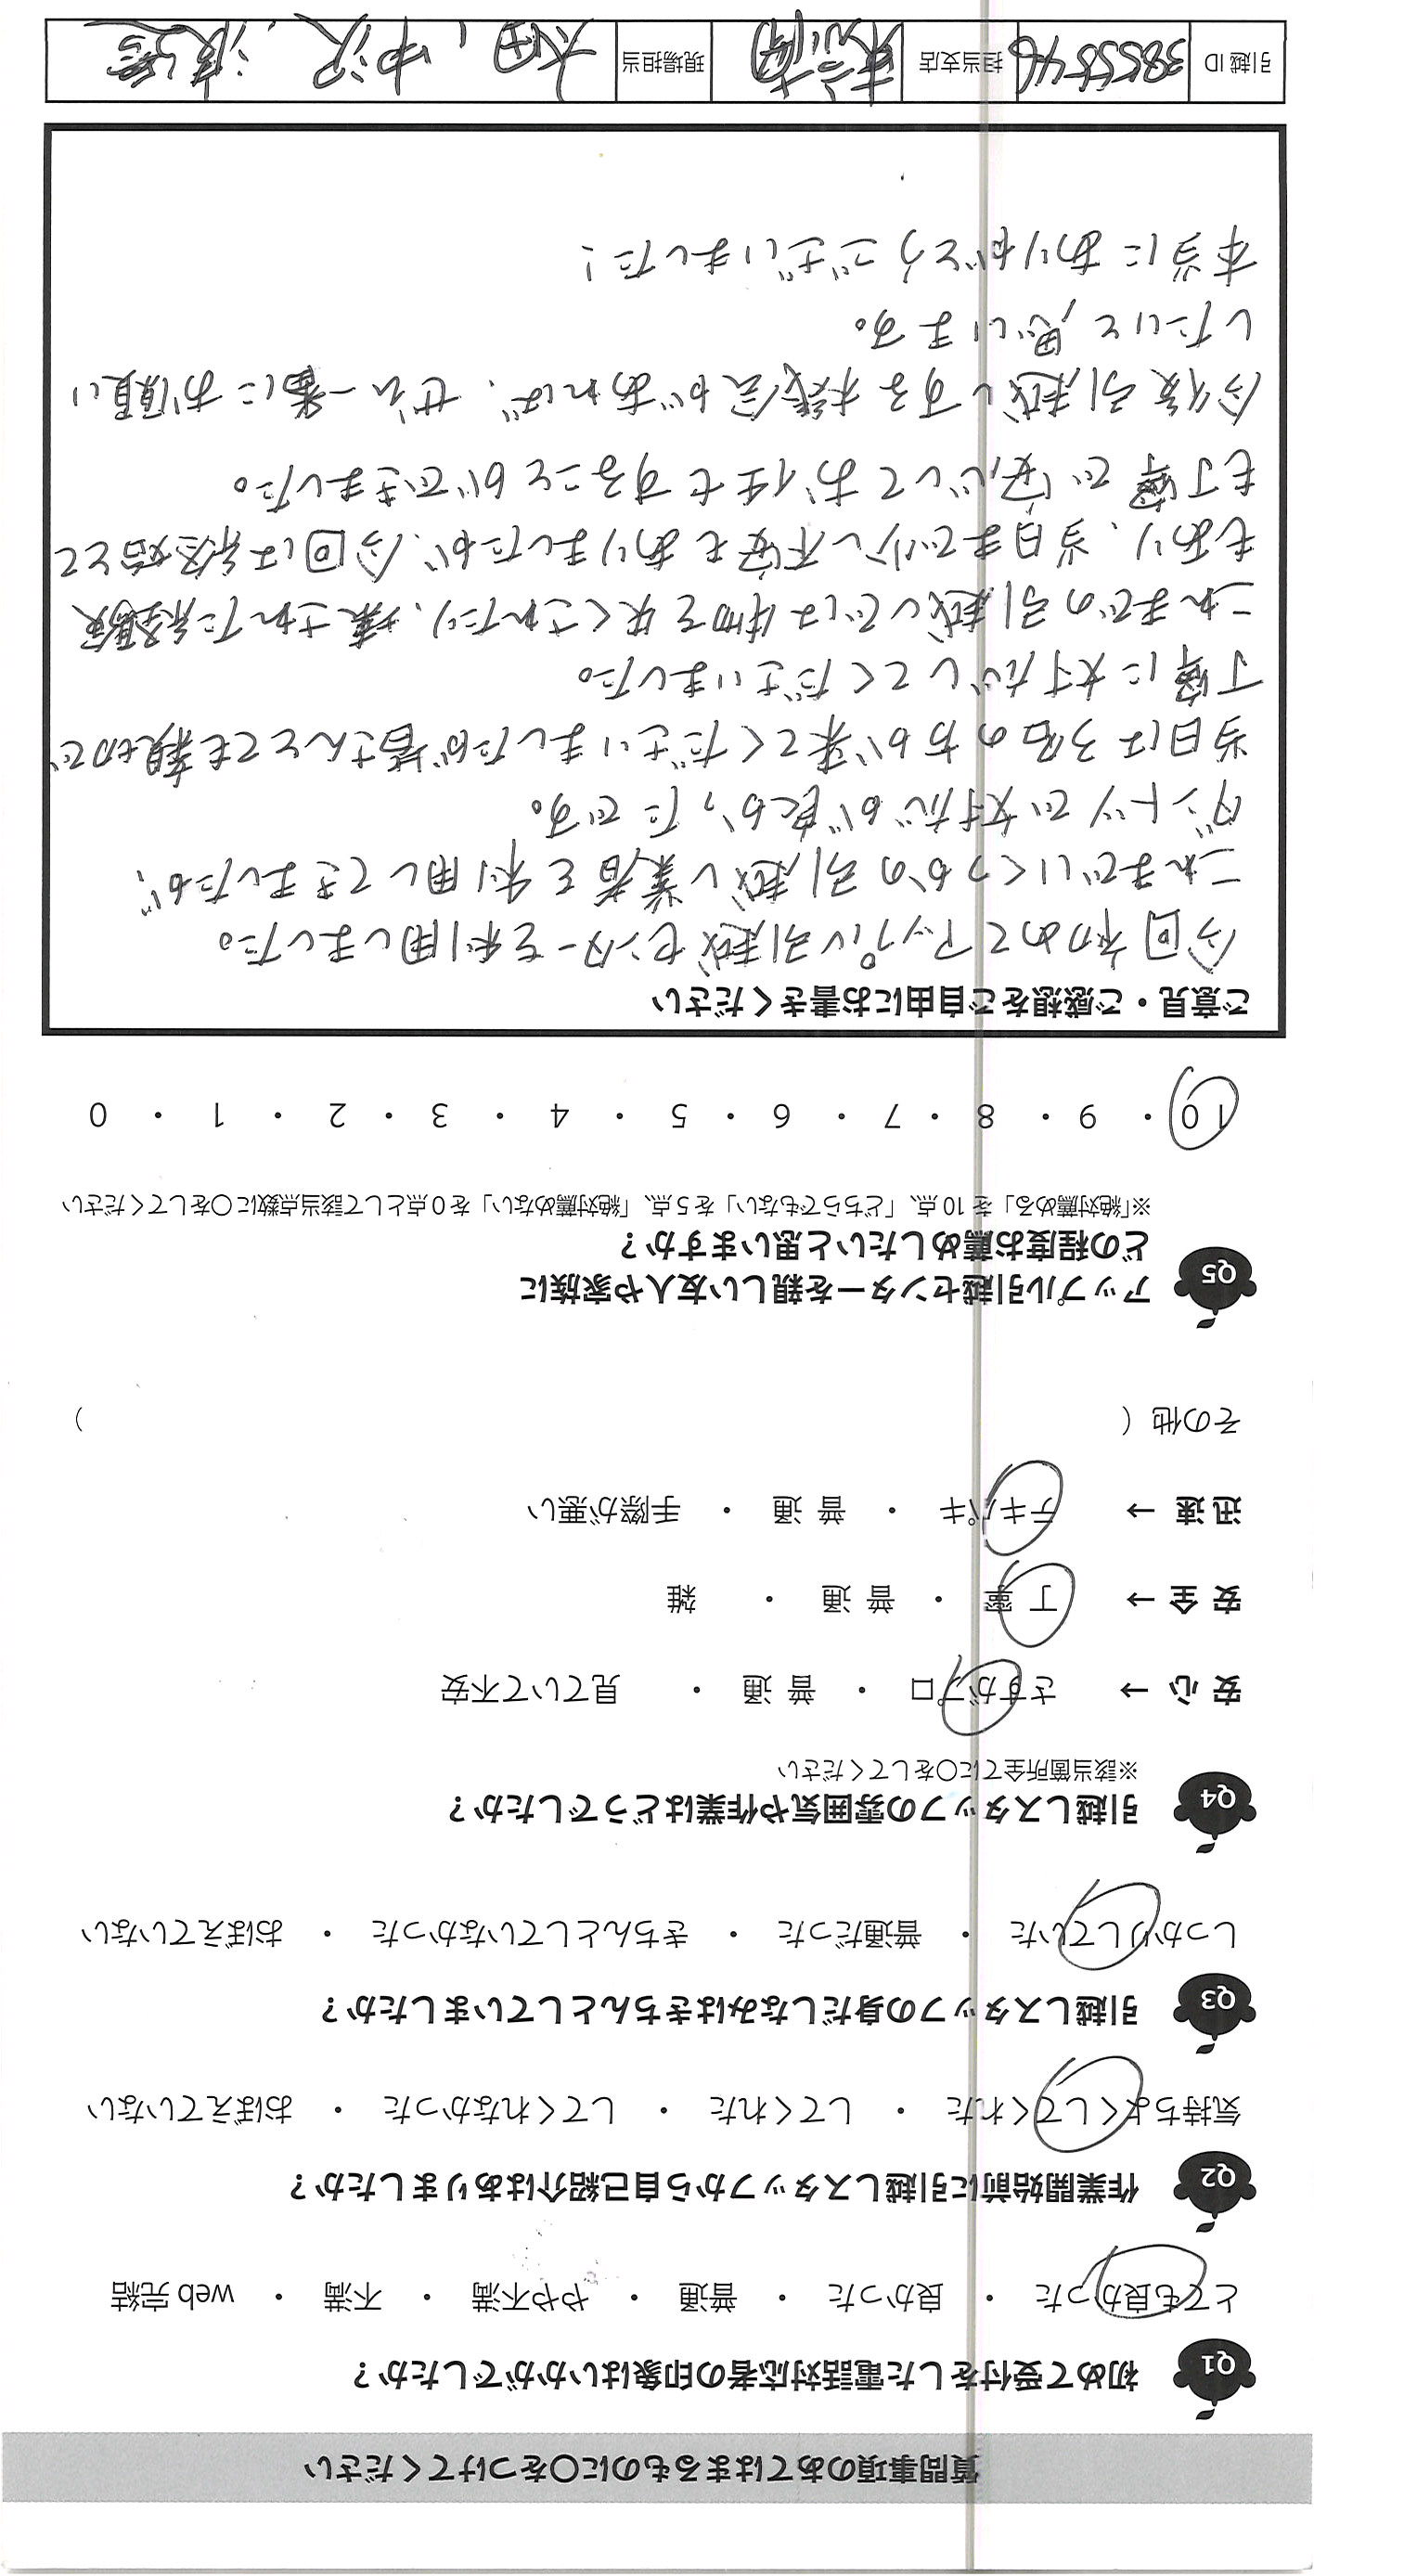 質問事項のあてはまるものに〇をつけてください
Q1 初めて受付をした電話対応者の印象はいかがでしたか？
とても良かった ・ 良かった ・ 普通 ・ やや不満 ・ 不満 ・ web 完結
Q2 作業開始前に引越しスタッフから自己紹介はありましたか？
気持ちよくしてくれた ・ してくれた ・ してくれなかった ・ おぼえていない
Q3 引越しスタッフの身だしなみはきちんとしていましたか？
しっかりしていた ・ 普通だった ・ きちんとしていなかった ・ おぼえていない
Q4 引越しスタッフの雰囲気や作業はどうでしたか？
※該当箇所全てに〇をしてください
安 心 → さすがプロ ・ 普 通 ・ 見ていて不安
安 全 → 丁 寧 ・ 普 通 ・ 雑
迅 速 → テキパキ ・ 普 通 ・ 手際が悪い
その他（ ）
Q5 アップル引越センターを親しい友人や家族に
どの程度お薦めしたいと思いますか？
※「絶対薦める」を 10 点、「どちらでもない」を 5 点、「絶対薦めない」を 0 点として該当点数に〇をしてください
10 ・ 9 ・ 8 ・ 7 ・ 6 ・ 5 ・ 4 ・ 3 ・ 2 ・ 1 ・ 0
ご意見・ご感想をご自由にお書きください
今回初めてアップル引越センターを利用しました。
これまでいくつかの引越し業者を利用してきましたが、
ダントツで対応が良かったです。
当日は3名の方が来てくださいましたが皆さんとても親切で
丁寧に対応してくださいました。
これまでの引越しでは物を失くされたり、壊された経験
もあり、当日まで少し不安もありましたが、今回は終始とて
も丁寧で安心してお任せすることができました。
今後引越しする機会があれば、ぜひ一番にお願い
したいと思います。
本当にありがとうございました！
引越 ID 3855546 担当支店 東京南 現場担当 太田、中沢、渡邉